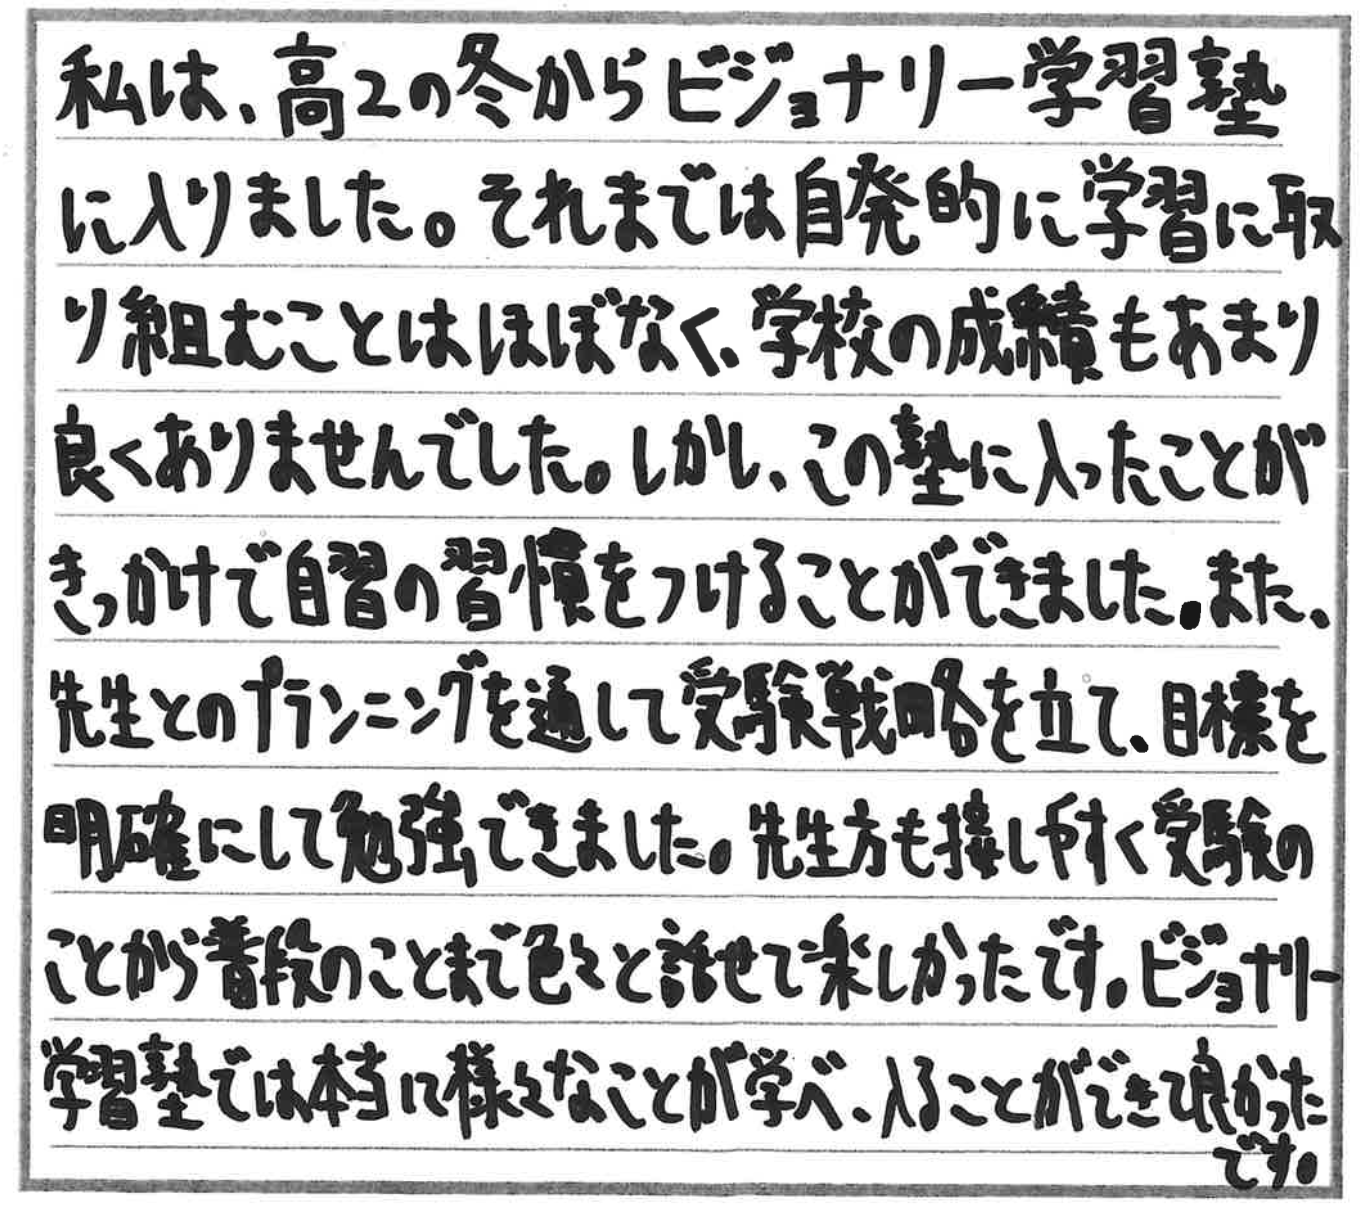 私は、高2の冬からビジョナリー学習塾
に入りました。それまでは自発的に学習に取
り組むことはほぼなく、学校の成績もあまり
良くありませんでした。しかし、この塾に入ったことが
きっかけで自習の習慣をつけることができました。また、
先生とのプランニングを通して受験戦略を立て、目標を
明確にして勉強できました。先生方も接しやすく受験の
ことから普段のことまで色々と話せて楽しかったです。ビジョナリー
学習塾では本当に様々なことが学べ、入ることができて良かった
です。